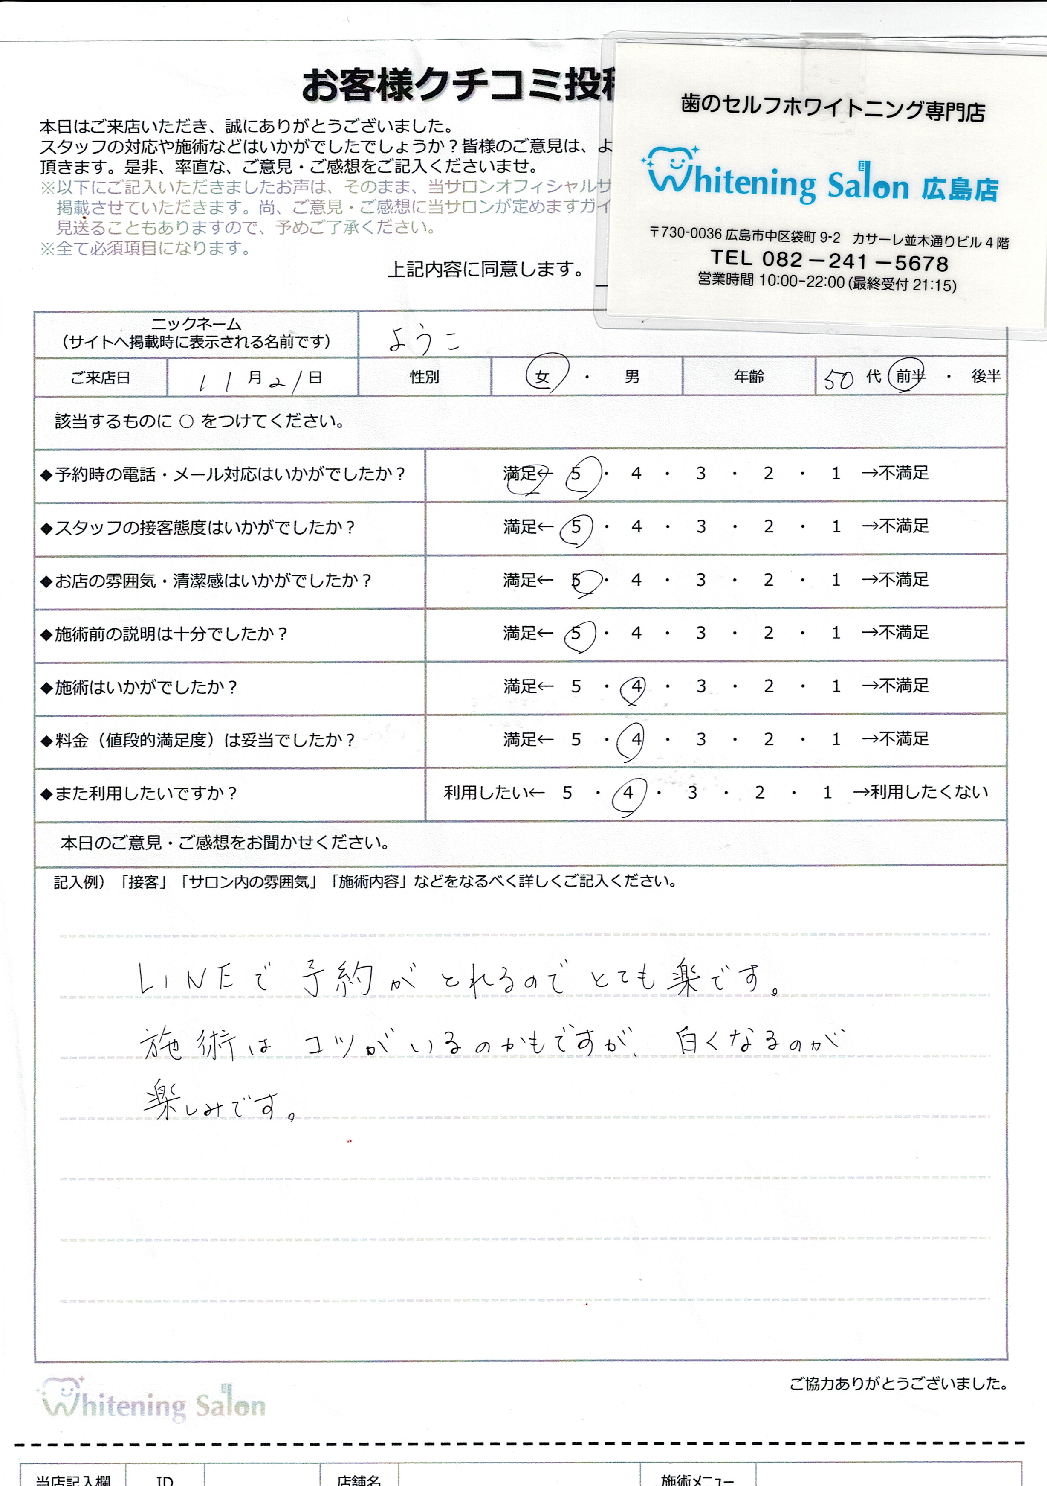 お客様クチコミ投稿
歯のセルフホワイトニング専門店
Whitening Salon 広島店
〒730-0036 広島市中区袋町 9-2 カサーレ並木通りビル 4 階
TEL 082-241-5678
営業時間 10:00-22:00 (最終受付 21:15)
本日はご来店いただき、誠にありがとうございました。
スタッフの対応や施術などはいかがでしたでしょうか？皆様のご意見は、よ
頂きます。是非、率直な、ご意見・ご感想をご記入くださいませ。
※以下にご記入いただきましたお声は、そのまま、当サロンオフィシャルサ
掲載させていただきます。尚、ご意見・ご感想に当サロンが定めますガイ
見送ることもありますので、予めご了承ください。
※全て必須項目になります。
上記内容に同意します。
ニックネーム
（サイトへ掲載時に表示される名前です） ようこ
ご来店日 11月21日 性別 女 ・ 男 年齢 50 代 前半 ・ 後半
該当するものに ○ をつけてください。
◆予約時の電話・メール対応はいかがでしたか？ 満足← 5 ・ 4 ・ 3 ・ 2 ・ 1 →不満足
◆スタッフの接客態度はいかがでしたか？ 満足← 5 ・ 4 ・ 3 ・ 2 ・ 1 →不満足
◆お店の雰囲気・清潔感はいかがでしたか？ 満足← 5 ・ 4 ・ 3 ・ 2 ・ 1 →不満足
◆施術前の説明は十分でしたか？ 満足← 5 ・ 4 ・ 3 ・ 2 ・ 1 →不満足
◆施術はいかがでしたか？ 満足← 5 ・ 4 ・ 3 ・ 2 ・ 1 →不満足
◆料金（値段的満足度）は妥当でしたか？ 満足← 5 ・ 4 ・ 3 ・ 2 ・ 1 →不満足
◆また利用したいですか？ 利用したい← 5 ・ 4 ・ 3 ・ 2 ・ 1 →利用したくない
本日のご意見・ご感想をお聞かせください。
記入例）「接客」「サロン内の雰囲気」「施術内容」などをなるべく詳しくご記入ください。
LINEで予約がとれるのでとても楽です。
施術はコツがいるのかもですが、白くなるのが
楽しみです。
ご協力ありがとうございました。
Whitening Salon
当店記入欄 ID 店舗名 施術メニュー